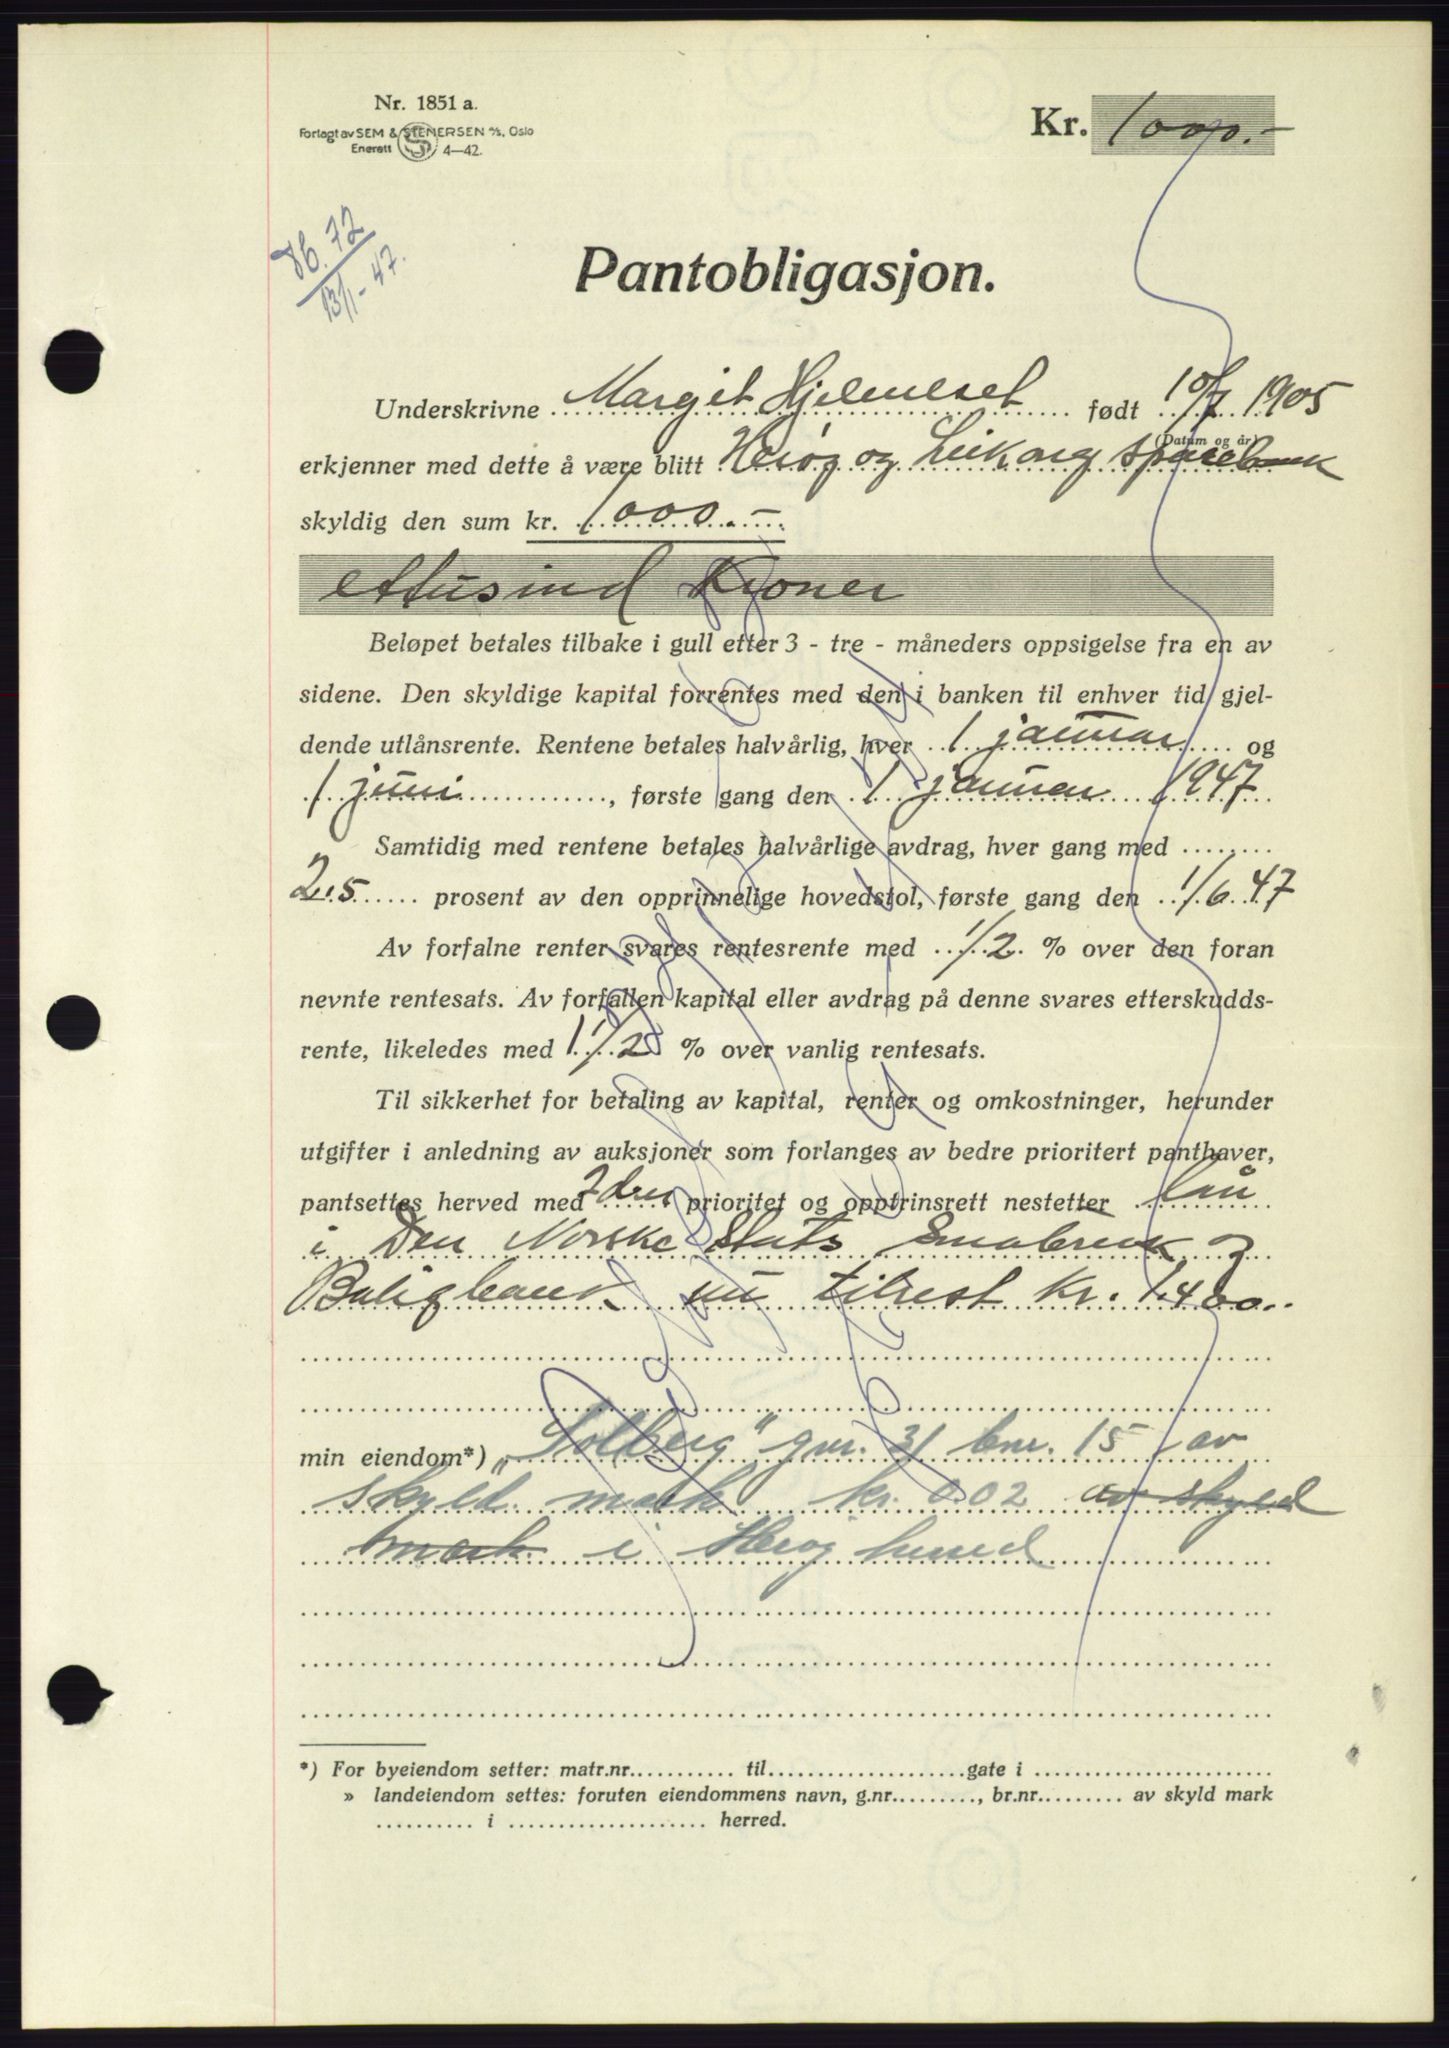 Nr. 1851 a.
Forlagt av SEM & STENERSEN A/S, Oslo
Enerett S 4—42.
Kr. 1000.-
Db. 72
13/1-47.
Pantobligasjon.
Underskrivne Margit Hjelmeset født 10/7 1905
(Datum og år)
erkjenner med dette å være blitt Herøy og Leikong sparebank
skyldig den sum kr. 1000.-
ettusind kroner
Beløpet betales tilbake i gull etter 3 - tre - måneders oppsigelse fra en av
sidene. Den skyldige kapital forrentes med den i banken til enhver tid gjel-
dende utlånsrente. Rentene betales halvårlig, hver 1 januar og
1 juni, første gang den 1 januar 1947
Samtidig med rentene betales halvårlige avdrag, hver gang med
2.5 prosent av den opprinnelige hovedstol, første gang den 1/6 47
Av forfalne renter svares rentesrente med 1/2 % over den foran
nevnte rentesats. Av forfallen kapital eller avdrag på denne svares etterskudds-
rente, likeledes med 1 1/2 % over vanlig rentesats.
Til sikkerhet for betaling av kapital, renter og omkostninger, herunder
utgifter i anledning av auksjoner som forlanges av bedre prioritert panthaver,
pantsettes herved med 2dre prioritet og opptrinsrett nestetter lån
i Den Norske Stats Småbruk og
Boligbank nu tilrest kr. 1.400..
min eiendom*) „Solberg" gnr. 31 bnr. 15 av
skyld mark kr. 0.02 av skyld
mark i Herøy herred
*) For byeiendom setter: matr.nr. til gate i
» landeiendom settes: foruten eiendommens navn, g.nr., br.nr. av skyld mark
i herred.